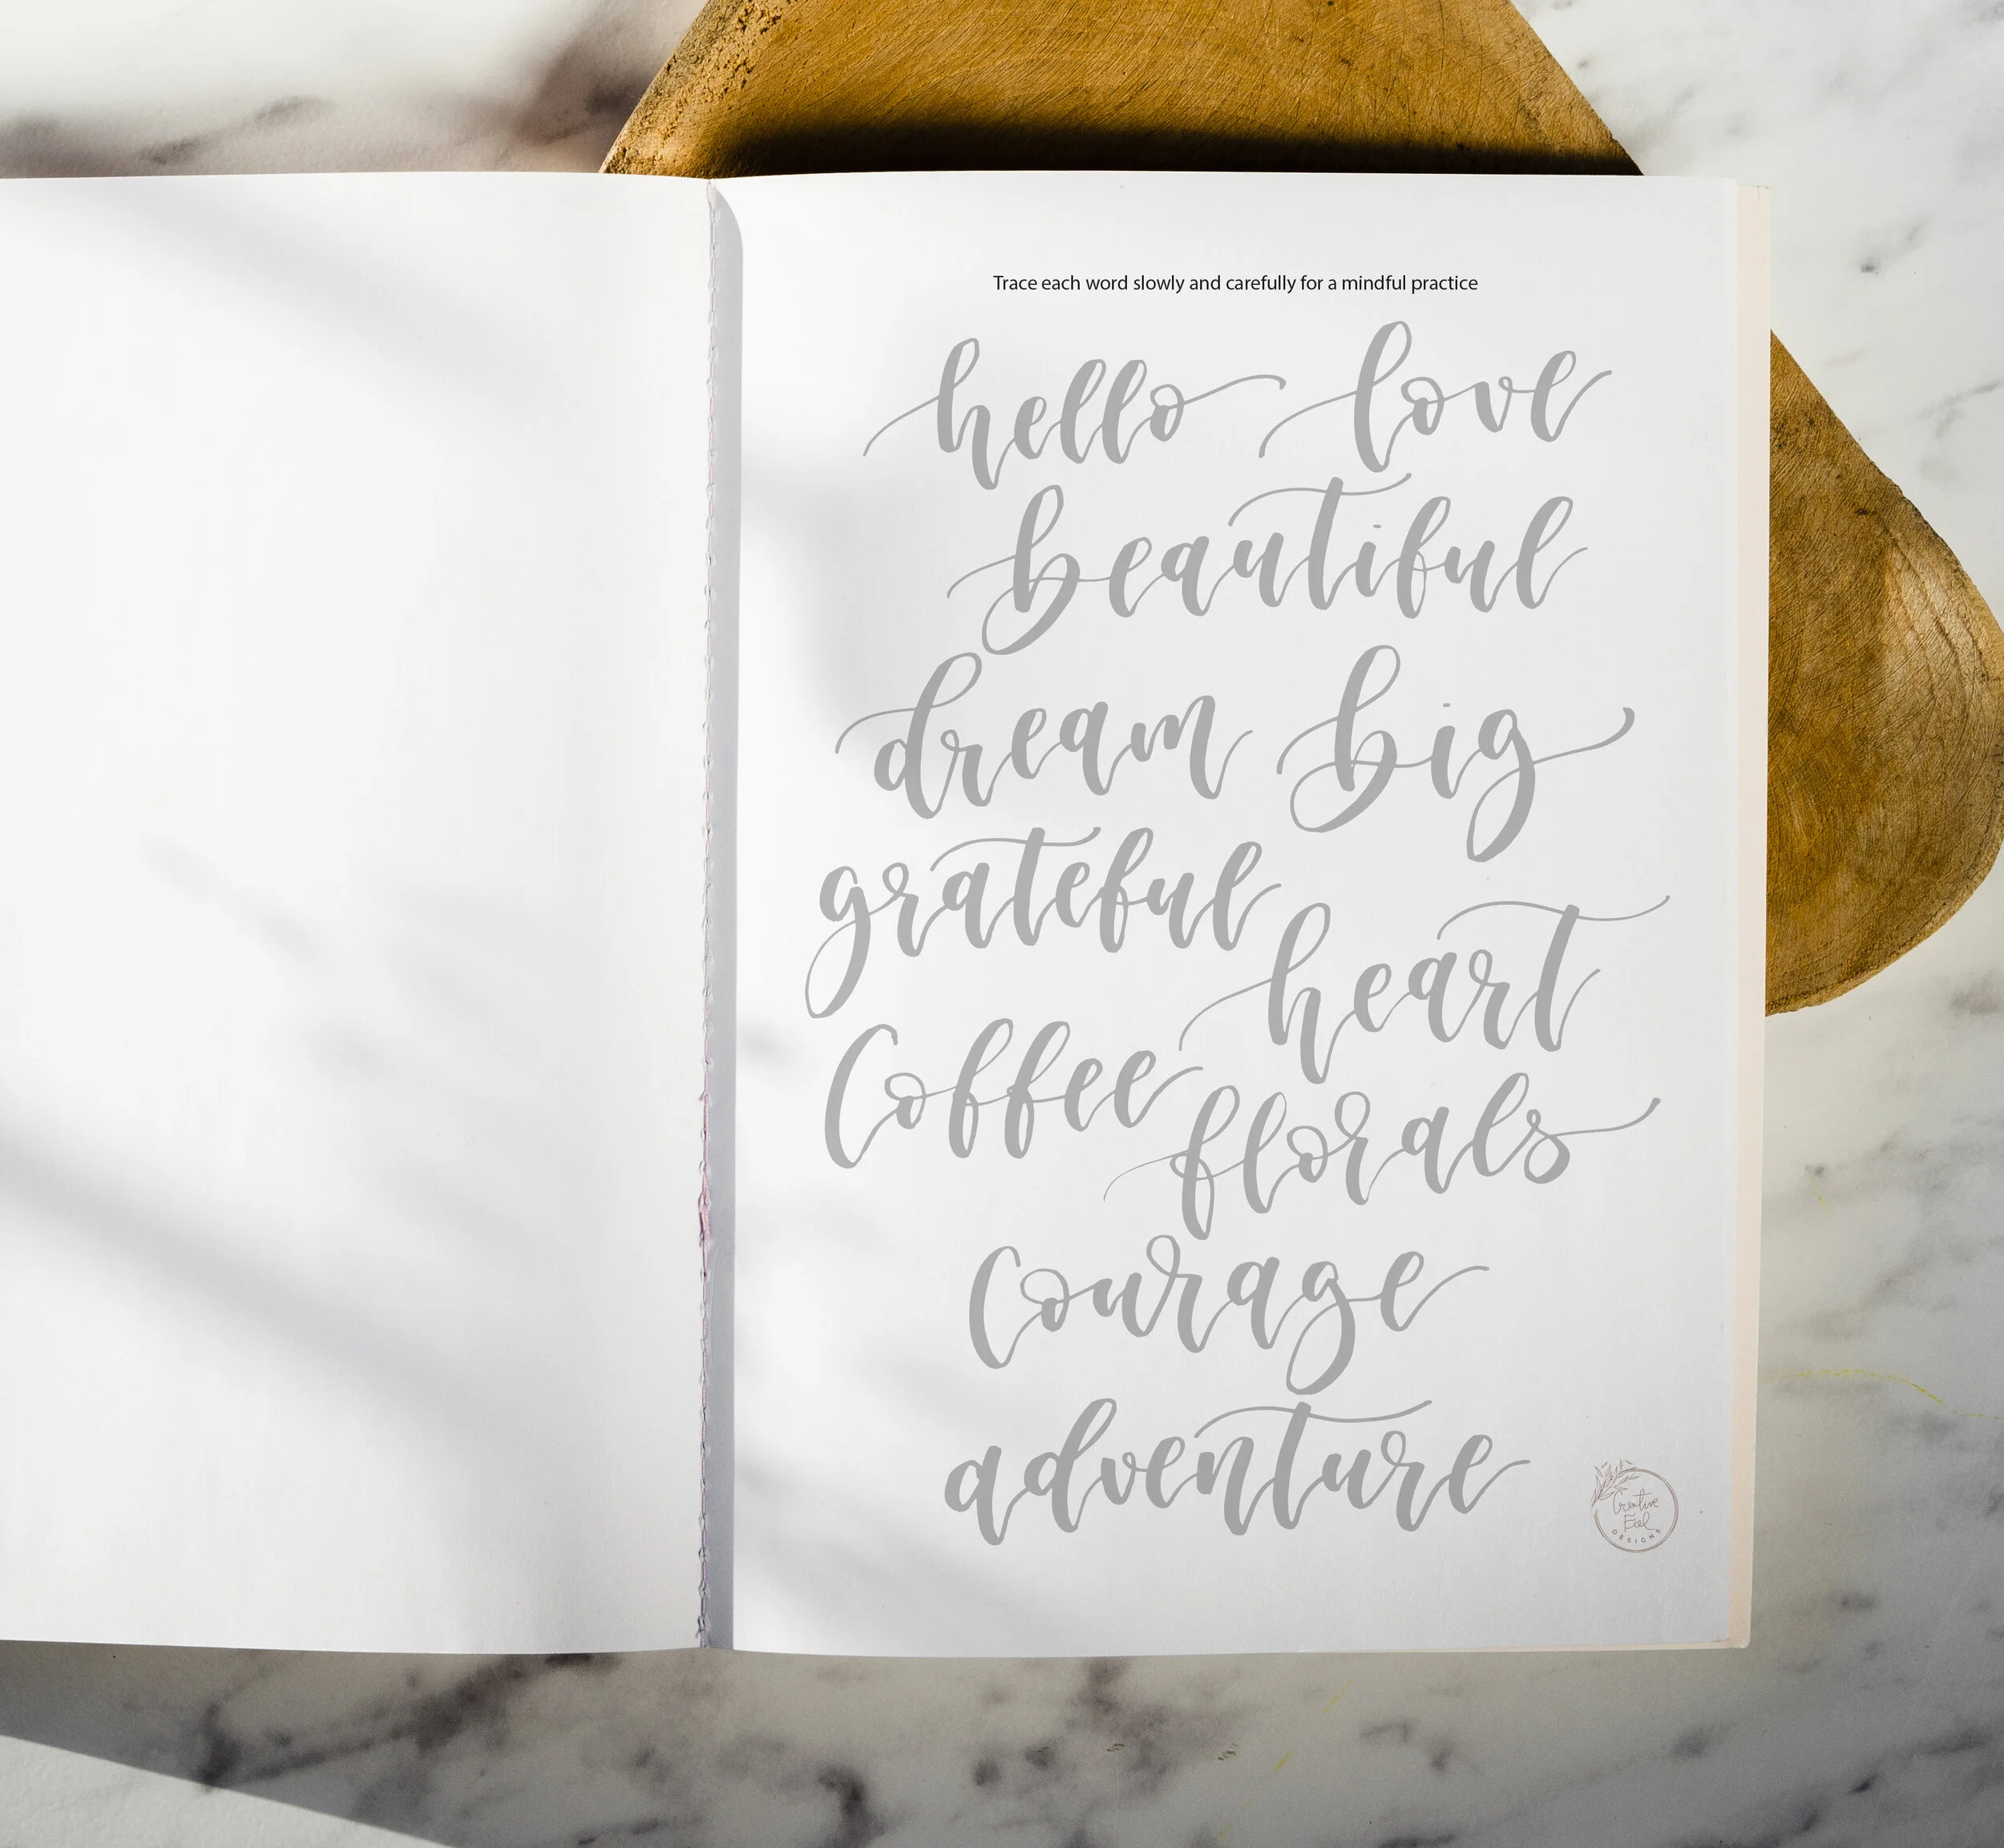 Trace each word slowly and carefully for a mindful practice
hello love
beautiful
dream big
grateful
heart
Coffee
florals
Courage
adventure
Creative
Feel
DESIGNS